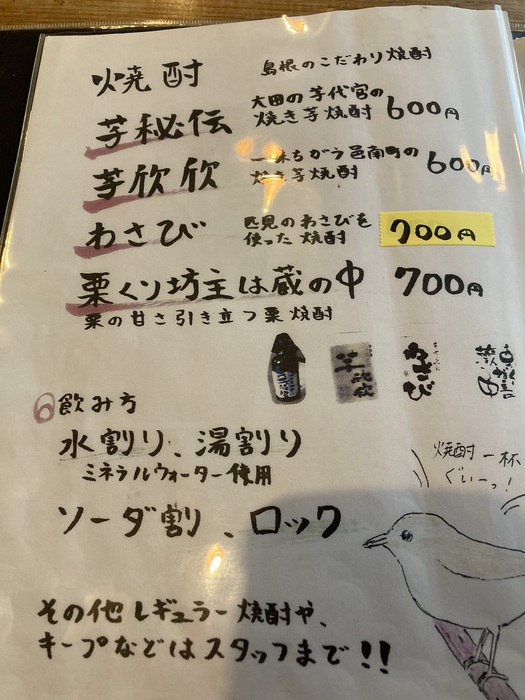 焼酎
島根のこだわり焼酎
芋秘伝
大田の芋代官の
焼き芋焼酎 600円
芋欣欣
一味ちがう邑南町の
焼き芋焼酎 600円
わさび
匹見のわさびを
使った焼酎
700円
栗くり坊主は蔵の中 700円
栗の甘さ引き立つ栗焼酎
わさび
飲み方
水割り、湯割り
ミネラルウォーター使用
ソーダ割、ロック
焼酎一杯
ぐいーっ!
その他レギュラー焼酎や、
キープなどはスタッフまで!!